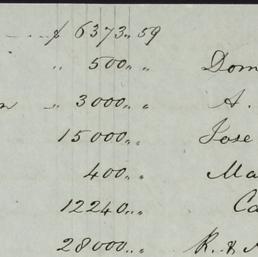 $ 6373 " 59
" 500 " " Dom
" 3000 " " A.
15000 " " Jose
400 " " Ma
12240 " " Ca
28000 " " R. &